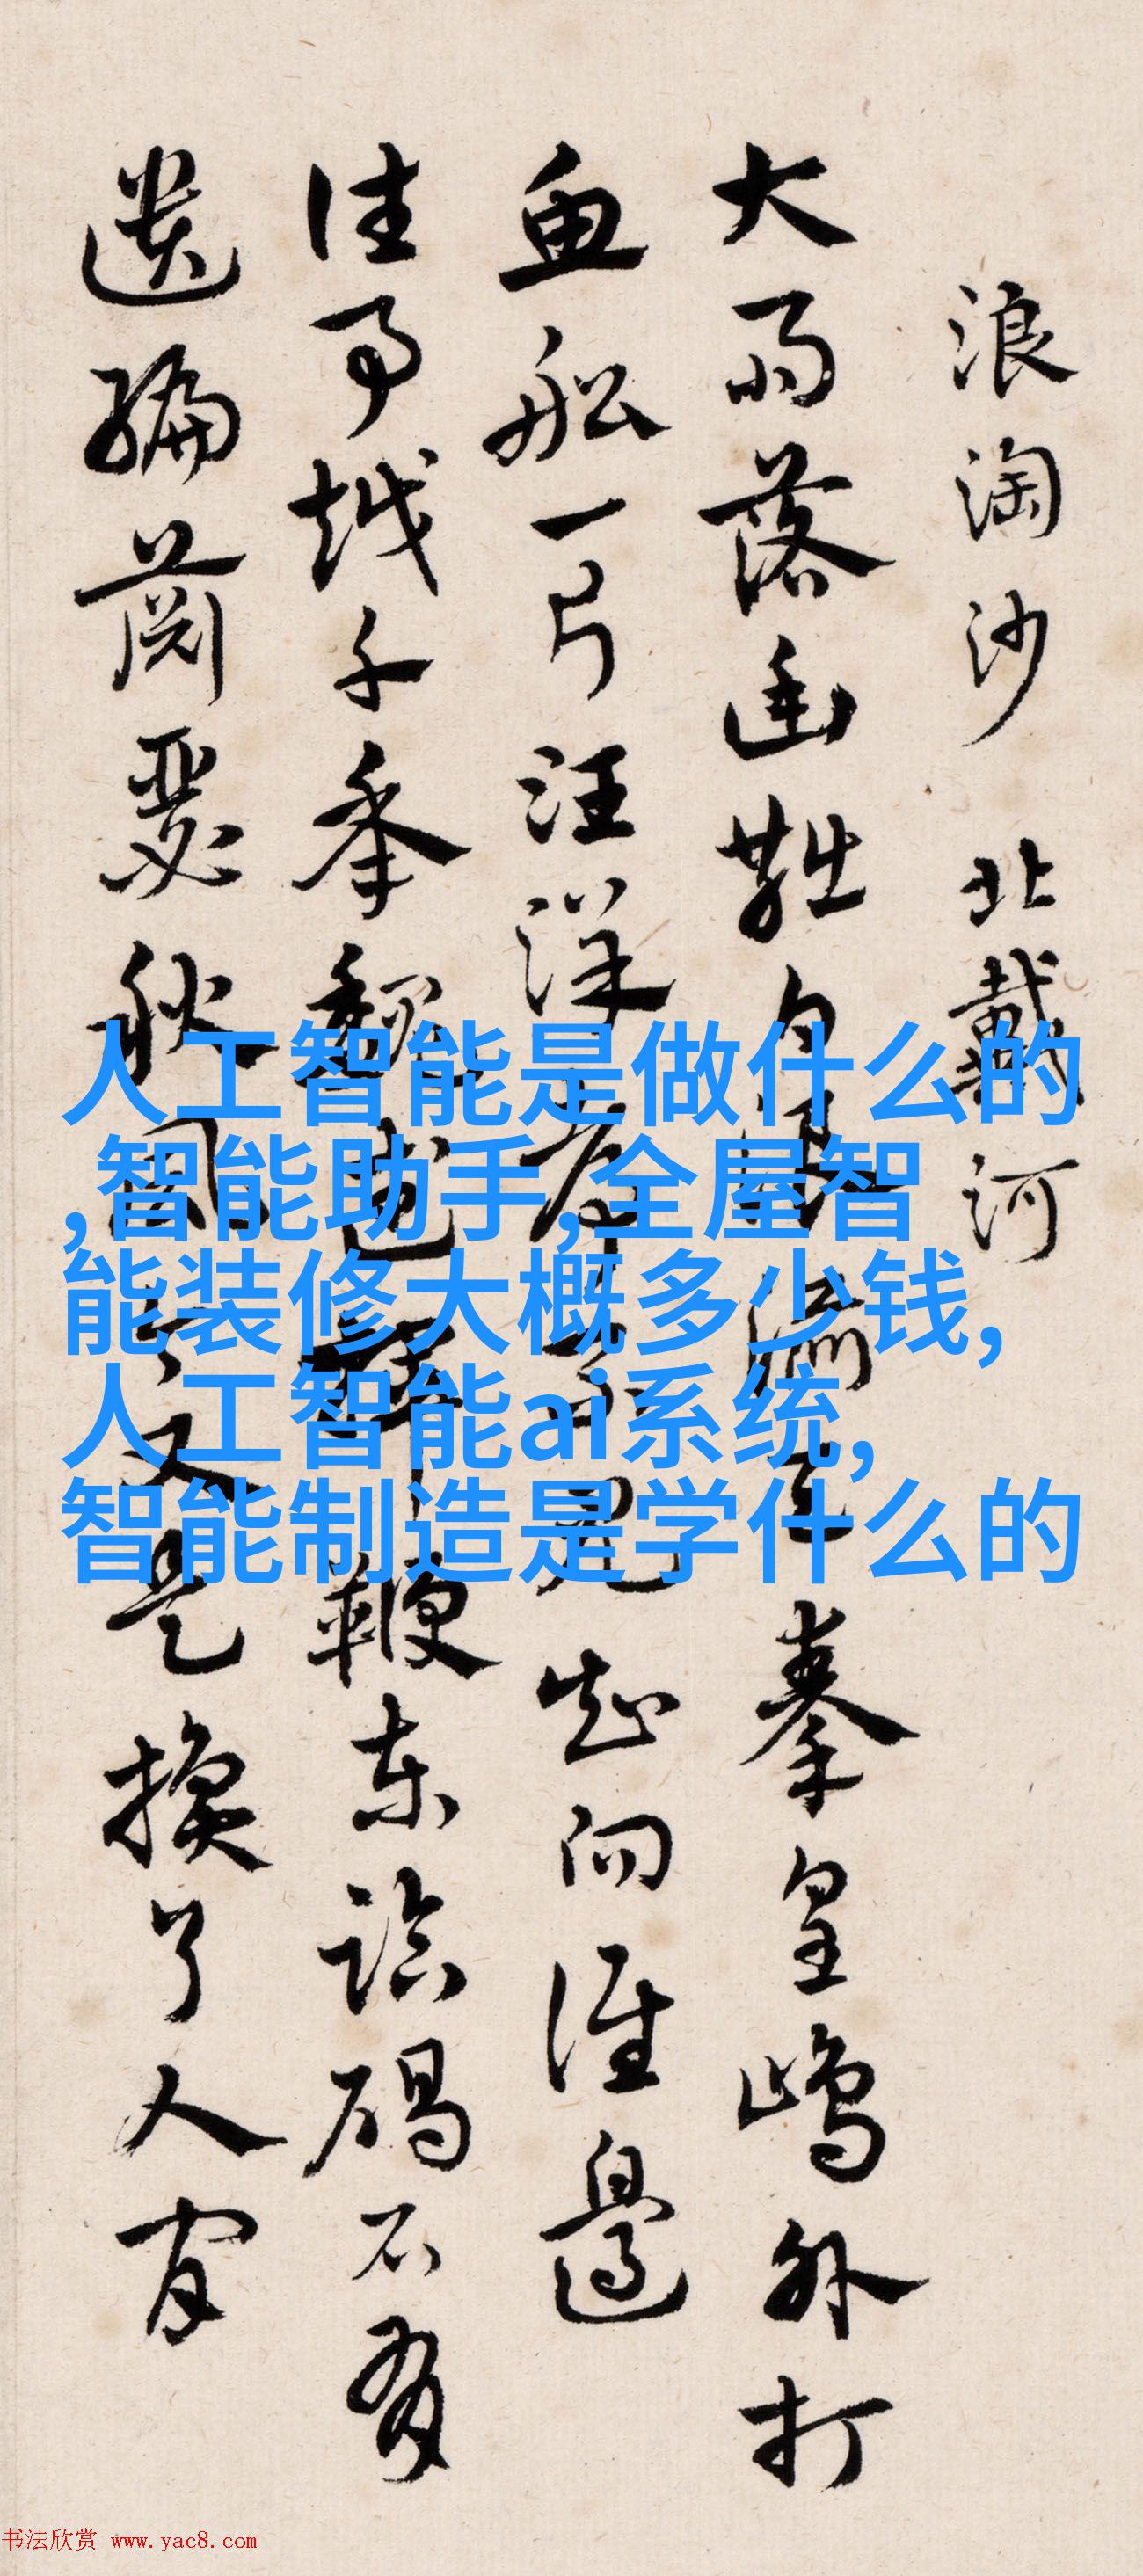 浪淘沙 北戴河
大雨落幽燕白浪滔天 秦皇島外打
魚船一片汪洋都不見知向誰邊
往事越千年魏武揮鞭東臨碣石有
遺編蕭瑟秋風今又是換了人間
人工智能是做什么的
,智能助手,全屋智
能装修大概多少钱,
人工智能ai系统,
智能制造是学什么的
书法欣赏 www.yac8.com